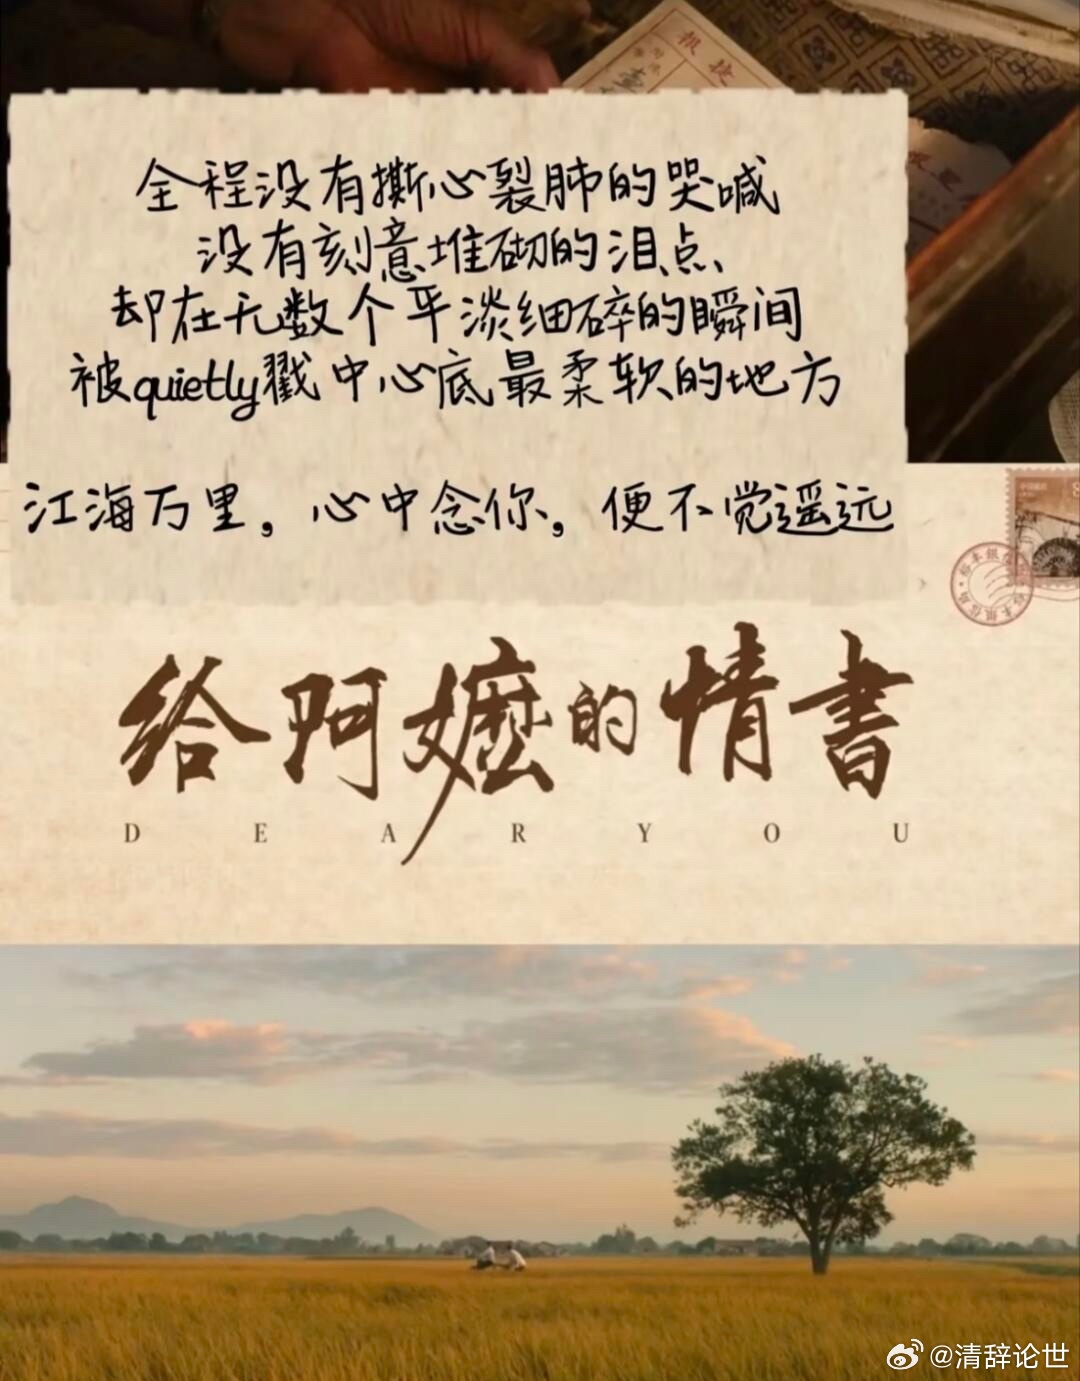 报 捷
全程没有撕心裂肺的哭喊
没有刻意堆砌的泪点、
却在无数个平淡细碎的瞬间
被quietly戳中心底最柔软的地方
江海万里，心中念你，便不觉遥远
8
给阿嬷的情書
DEAR YOU
@清辞论世